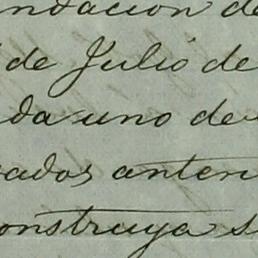 ndacion de
de Julio de
da uno de
cados anten
onstruya s